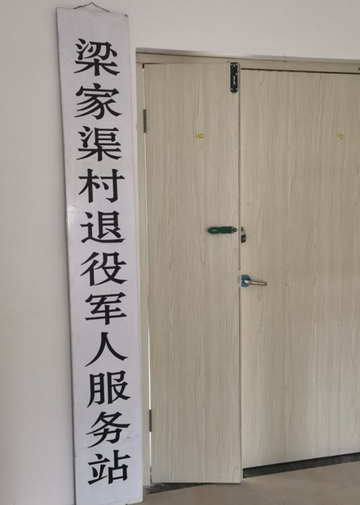 梁家渠村退役军人服务站